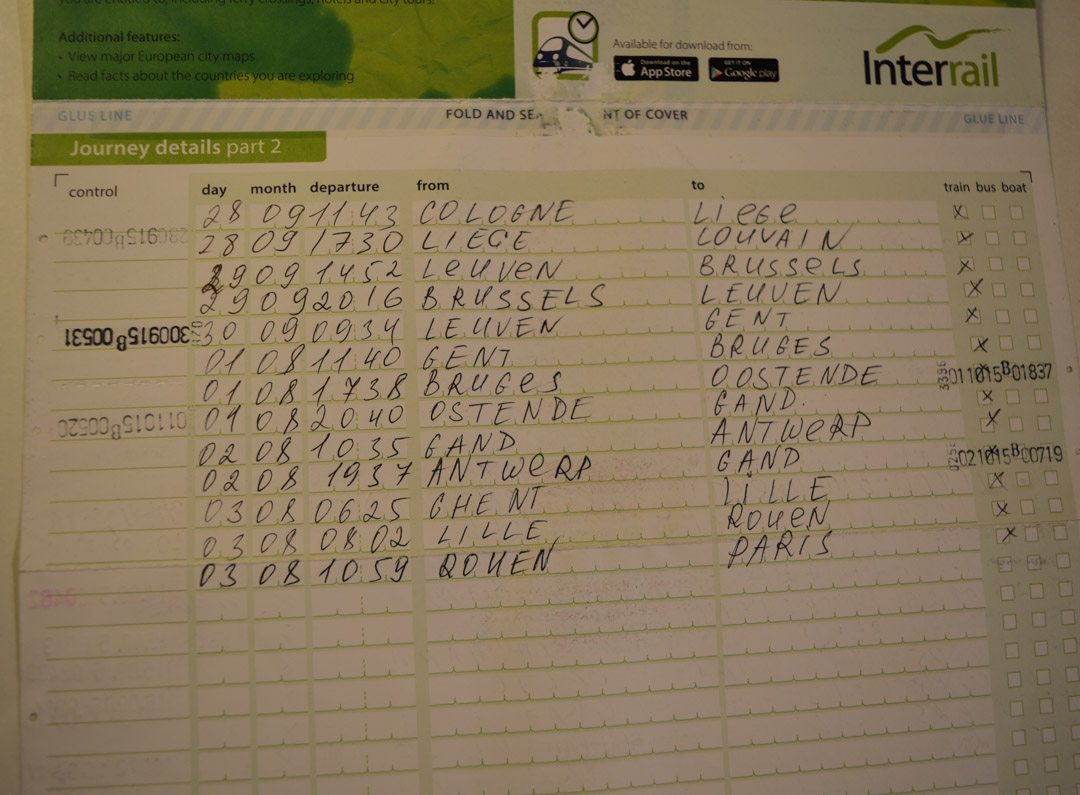 you are entitled to, including ferry crossings, hotels and city tours!
Additional features:
• View major European city maps
• Read facts about the countries you are exploring
Available for download from:
Download on the App Store
GET IT ON Google play
Interrail
GLUE LINE FOLD AND SEA NT OF COVER GLUE LINE
Journey details part 2
control day month departure from to train bus boat
28 09 1143 COLOGNE LIEGE x
28 09 1730 LIEGE LOUVAIN x
29 09 1452 LEUVEN BRUSSELS x
29 09 2016 BRUSSELS LEUVEN x
300915B00531 30 09 0934 LEUVEN GENT x
01 08 1140 GENT BRUGES x
01 08 1738 BRUGES OOSTENDE 3396 011015B01837
011015B00520 01 08 2040 OSTENDE GAND. x
02 08 1035 GAND ANTWERP x
02 08 1937 ANTWERP GAND 021015B00719
03 08 0625 GHENT LILLE x
03 08 0802 LILLE ROUEN x
03 08 1059 ROUEN PARIS x